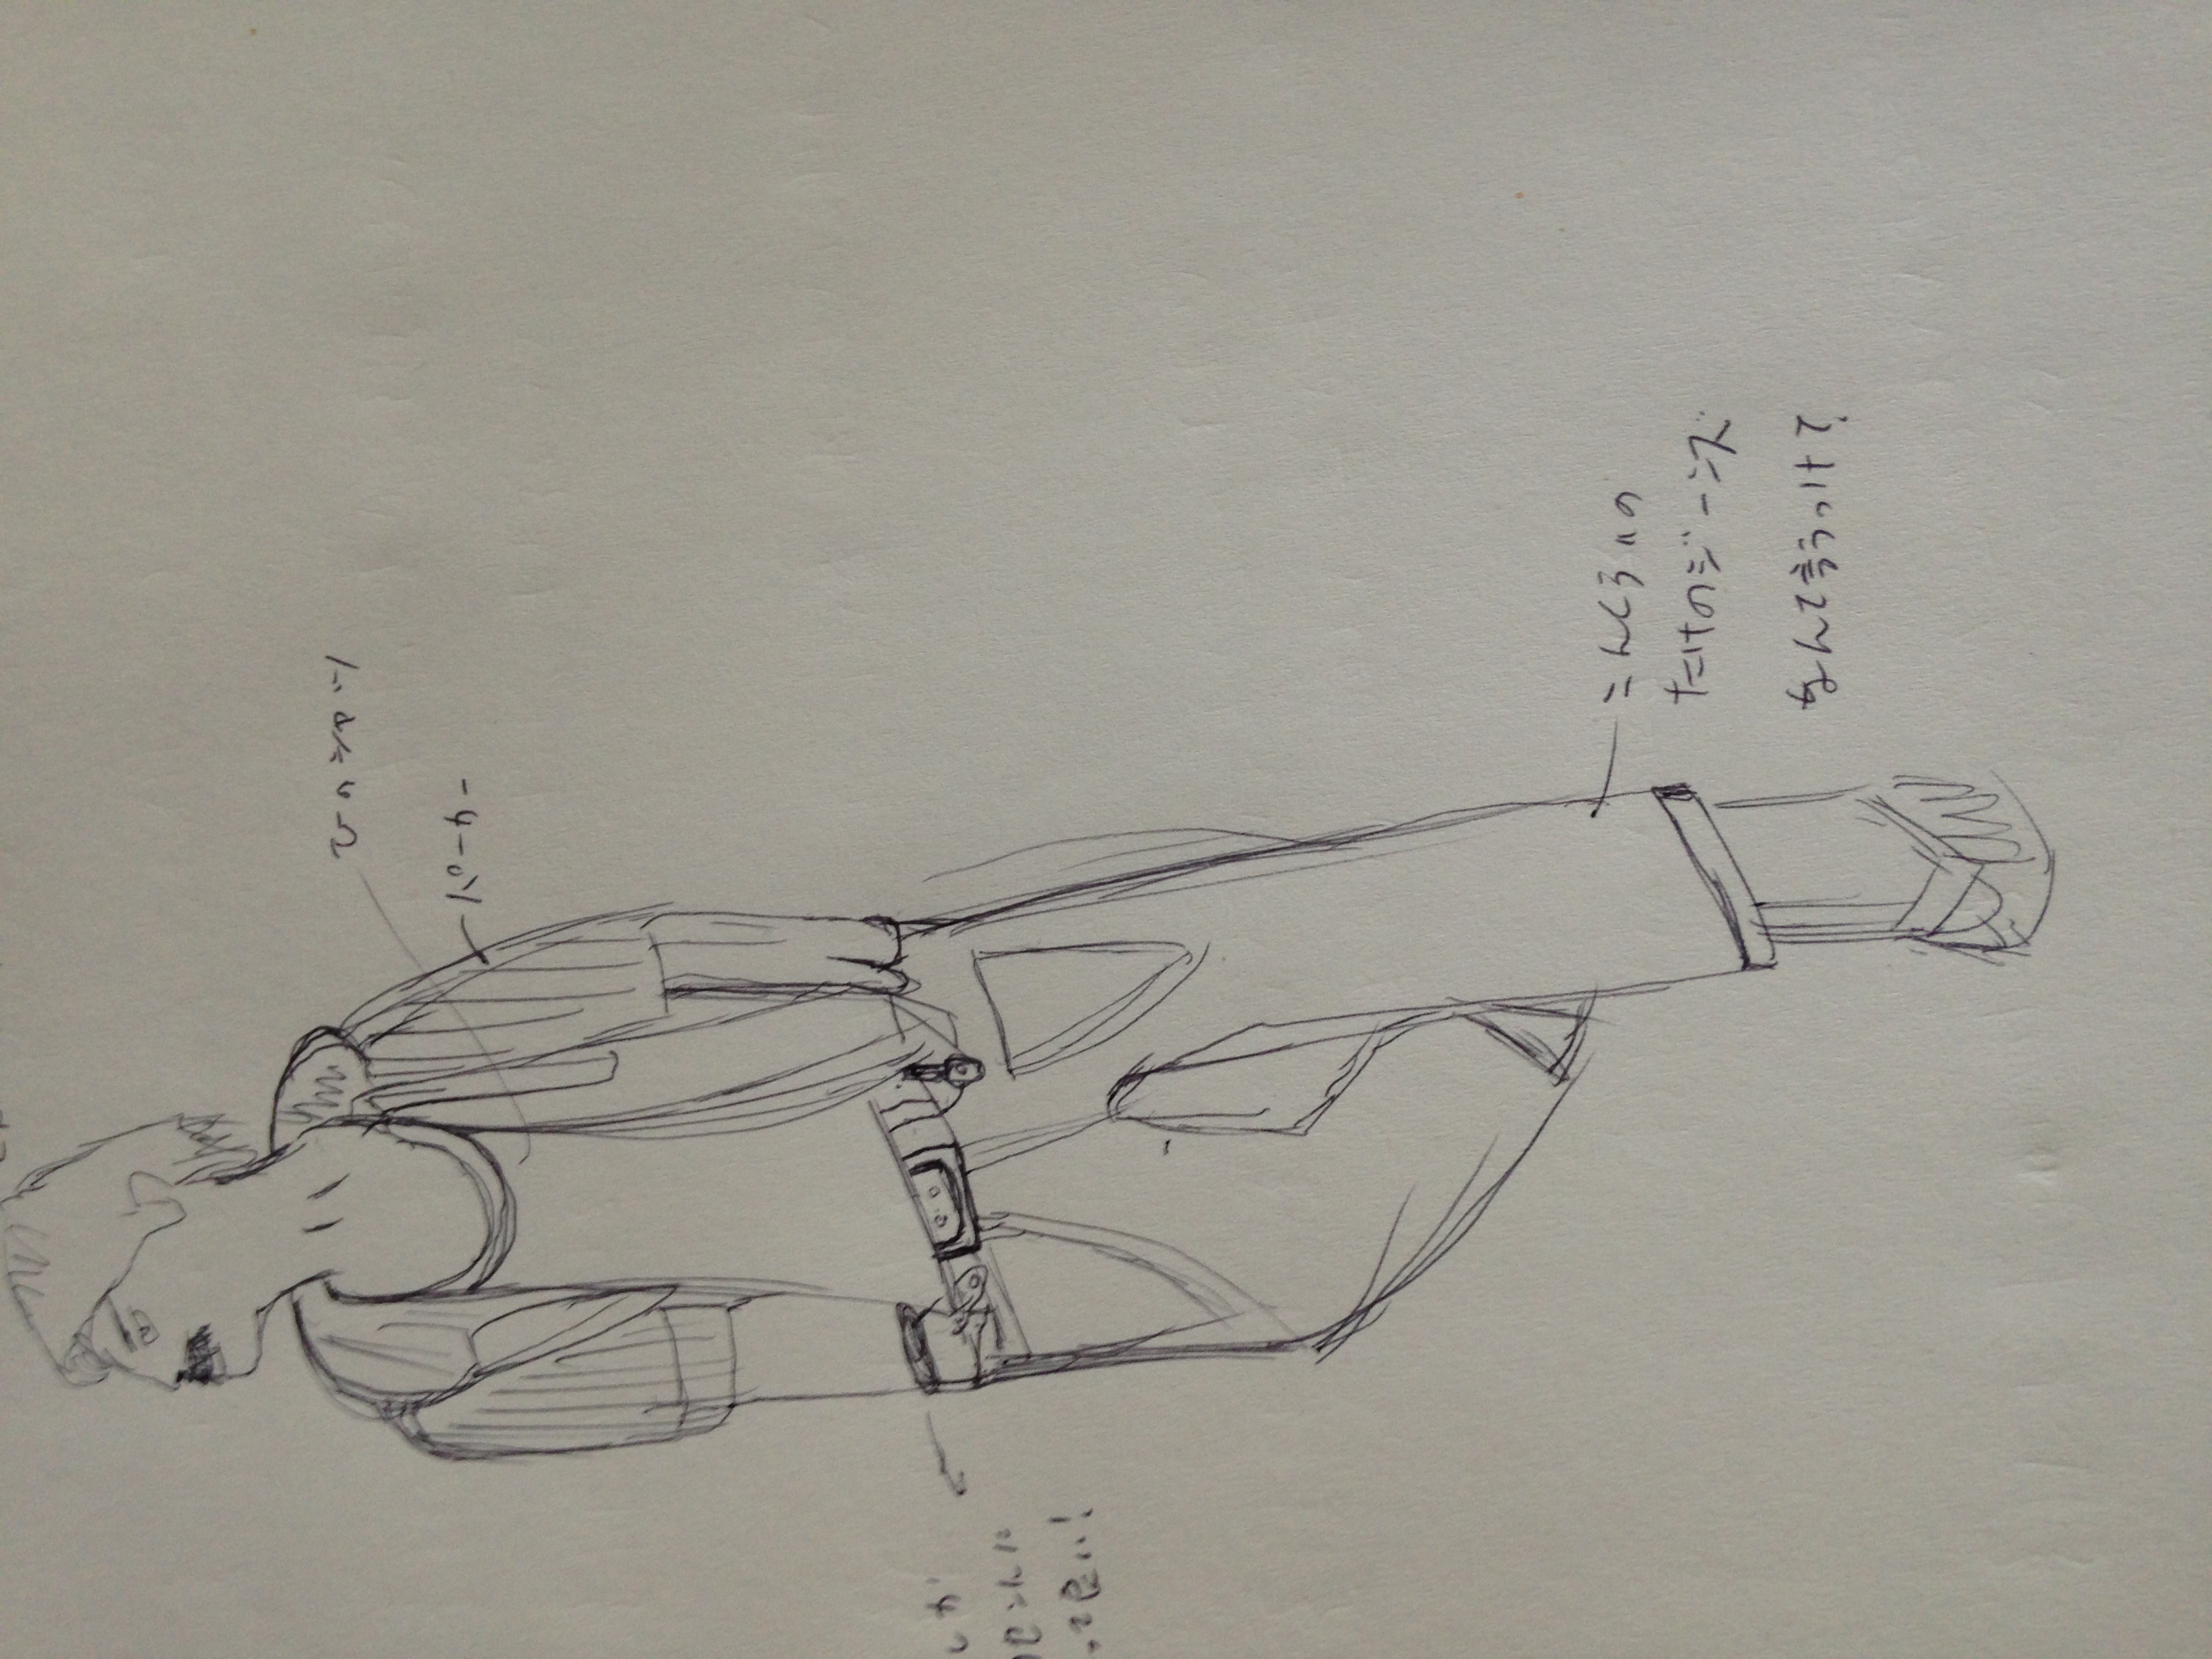 ひのシャツ
パーカー
って良い!
こんくらいの
たけのジーンズ
なんて言うっけ?